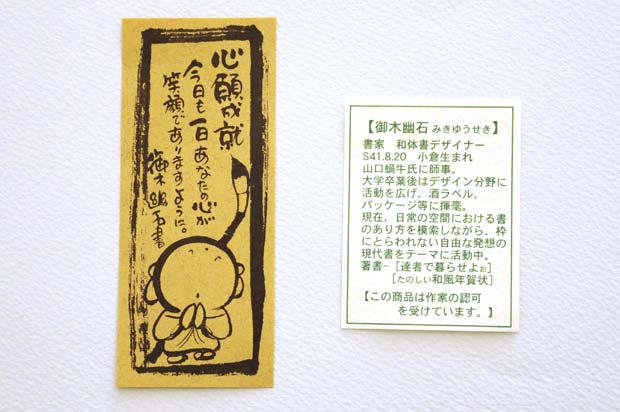 心願成就
今日も一日あなたの心が
笑顔でありますように。
御木幽石書
【御木幽石 みきゆうせき】
書家 和体書デザイナー
S41.8.20 小倉生まれ
山口蝸牛氏に師事。
大学卒業後はデザイン分野に
活動を広げ、酒ラベル、
パッケージ等に揮毫。
現在、日常の空間における書
のあり方を模索しながら、枠
にとらわれない自由な発想の
現代書をテーマに活動中。
著書－［達者で暮らせよぉ］
［たのしい和風年賀状］
【この商品は作家の認可
を受けています。】